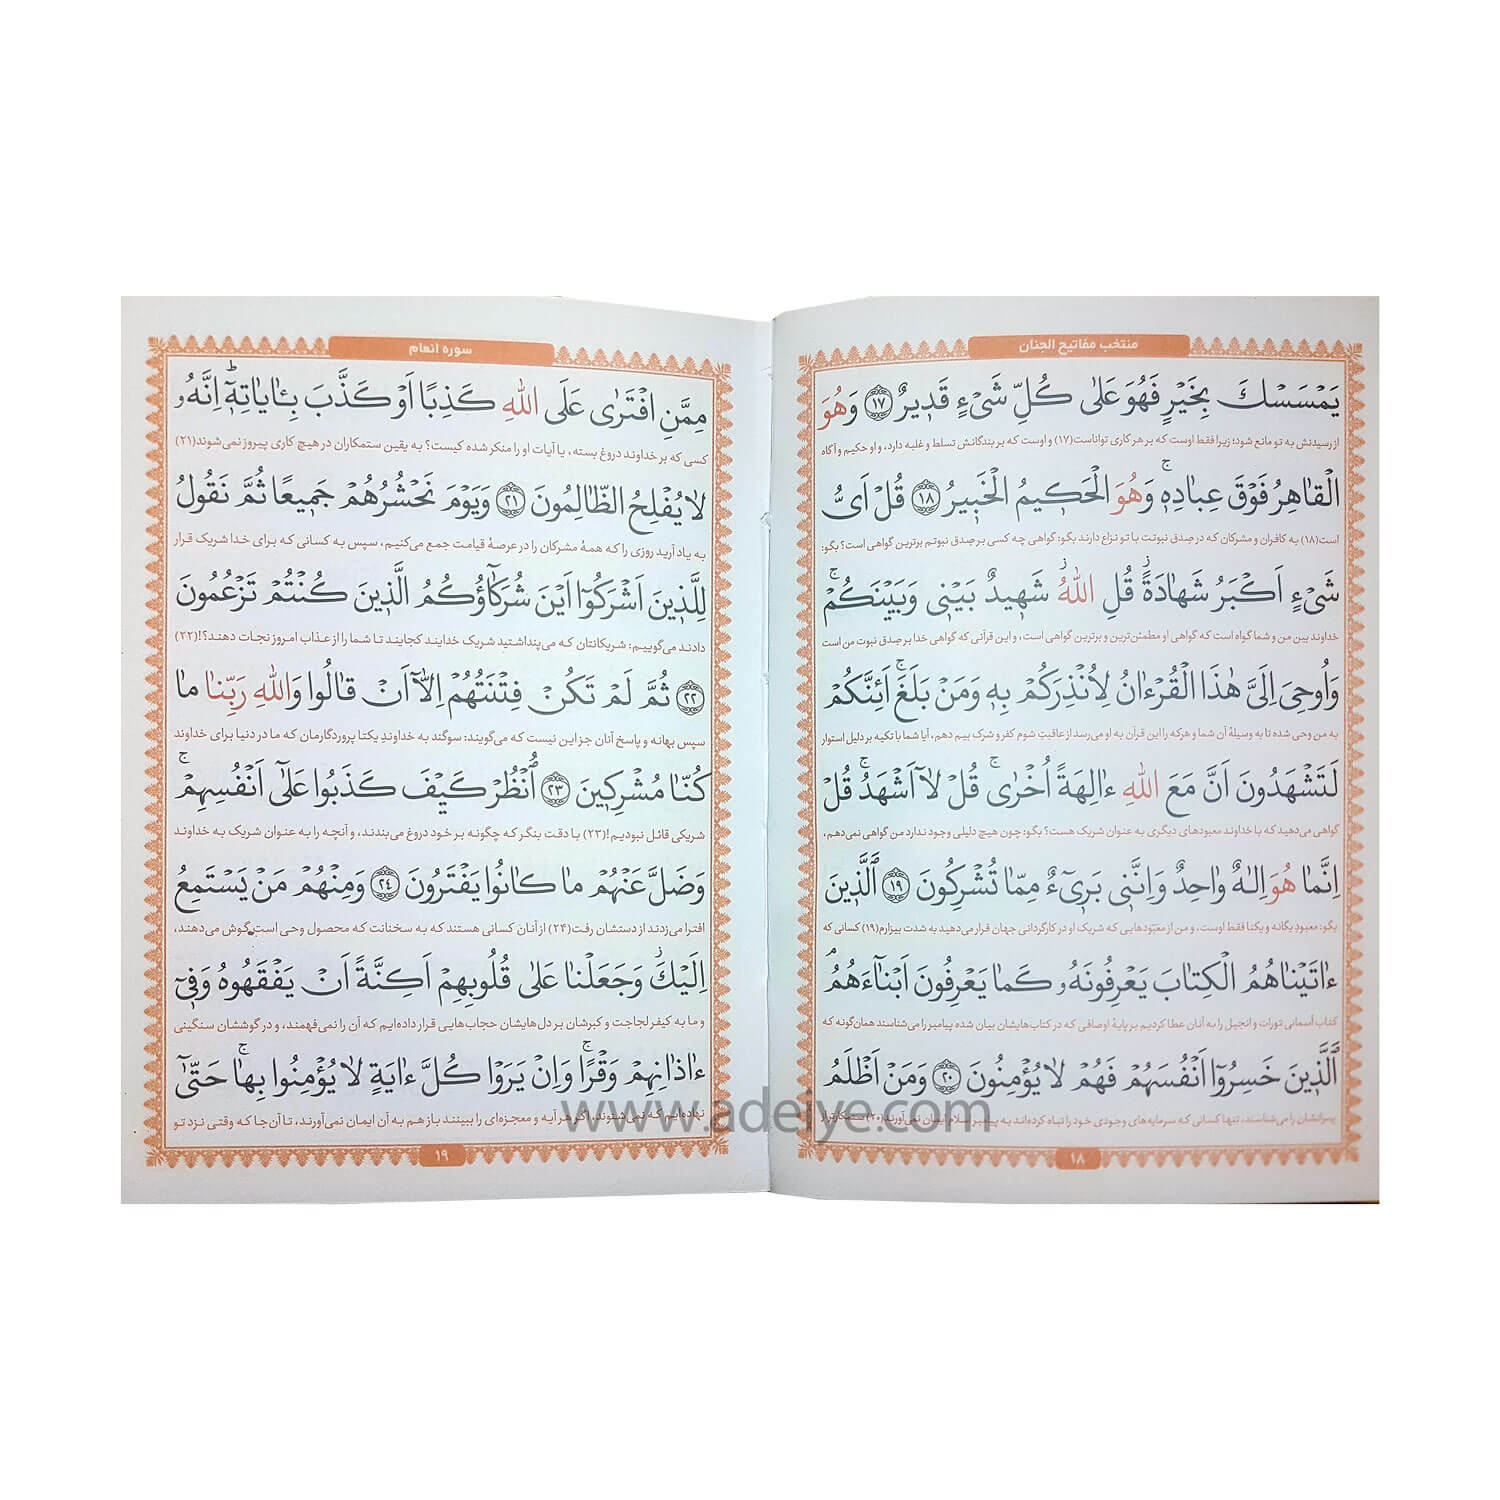 منتخب مفاتیح الجنان
يَمْسَسْكَ بِخَيْرٍ فَهُوَ عَلىٰ كُلِّ شَيْءٍ قَدِيرٌ ﴿١٧﴾ وَهُوَ
از رسیدنش به تو مانع شود؛ زیرا فقط اوست که بر هر کاری تواناست(۱۷) و اوست که بر بندگانش تسلط و غلبه دارد، و او حکیم و آگاه
الْقاهِرُ فَوْقَ عِبادِهِۦ ۚ وَهُوَ الْحَكِيمُ الْخَبِيرُ ﴿١٨﴾ قُلْ اَىُّ
است(۱۸) به کافران و مشرکان که در صِدق نبوتت با تو نزاع دارند بگو: گواهی چه کسی بر صِدق نبوتم برترین گواهی است؟ بگو:
شَيْءٍ اَكْبَرُ شَهادَةً ۖ قُلِ اللهُ ۖ شَهِيدٌ بَيْنِي وَبَيْنَكُمْ ۚ
خداوند بین من و شما گواه است که گواهی او مطمئن‌ترین و برترین گواهی است، و این قرآنی که گواهی خدا بر صدق نبوت من است
وَاُوحِيَ اِلَيَّ هٰذَا الْقُرْءانُ لِاُنْذِرَكُمْ بِهِۦ وَمَنْ بَلَغَ ۚ اَئِنَّكُمْ
به من وحی شده تا به وسیلهٔ آن شما و هرکه را این قرآن به او می‌رسد از عاقبتِ شوم کفر و شرک بیم دهم، آیا شما با تکیه بر دلیل استوار
لَتَشْهَدُونَ اَنَّ مَعَ اللهِ ءالِهَةً اُخْرىٰ ۚ قُلْ لاٰ اَشْهَدُ ۚ قُلْ
گواهی می‌دهید که با خداوند معبودهای دیگری به عنوان شریک هست؟ بگو: چون هیچ دلیلی وجود ندارد من گواهی نمی‌دهم،
اِنَّما هُوَ اِلٰهٌ واحِدٌ وَاِنَّنِي بَرِيءٌ مِمّا تُشْرِكُونَ ﴿١٩﴾ اَلَّذِينَ
بگو: معبودِ یگانه و یکتا فقط اوست، و من از معبودهایی که شریک او در کارگردانی جهان قرار می‌دهید به شدت بیزارم(۱۹) کسانی که
ءاتَيْناهُمُ الْكِتابَ يَعْرِفُونَهُۥ كَما يَعْرِفُونَ اَبْناءَهُمُ ۘ
کتاب آسمانی تورات و انجیل را به آنان عطا کردیم بر پایهٔ اوصافی که در کتاب‌هایشان بیان شده پیامبر را می‌شناسند همان‌گونه که
اَلَّذِينَ خَسِرُوا اَنْفُسَهُمْ فَهُمْ لا يُؤْمِنُونَ ﴿٢٠﴾ وَمَنْ اَظْلَمُ
پسرانشان را می‌شناسند، تنها کسانی که سرمایه‌های وجودی خود را تباه کرده‌اند به پیامبر اسلام ایمان نمی‌آورند(۲۰) ستمکارتر از
۱۸
سوره انعام
مِمَّنِ افْتَرىٰ عَلَى اللهِ كَذِبًا اَوْ كَذَّبَ بِـٔاياتِهِۦ ۗ اِنَّهُۥ
کسی که بر خداوند دروغ بسته، یا آیات او را منکر شده کیست؟ به یقین ستمکاران در هیچ کاری پیروز نمی‌شوند(۲۱)
لا يُفْلِحُ الظّالِمُونَ ﴿٢١﴾ وَيَوْمَ نَحْشُرُهُمْ جَمِيعًا ثُمَّ نَقُولُ
به یاد آرید روزی را که همهٔ مشرکان را در عرصهٔ قیامت جمع می‌کنیم، سپس به کسانی که برای خدا شریک قرار
لِلَّذِينَ اَشْرَكُوا اَيْنَ شُرَكاؤُكُمُ الَّذِينَ كُنْتُمْ تَزْعُمُونَ
دادند می‌گوییم: شریکانتان که می‌پنداشتید شریک خدایند کجایند تا شما را از عذاب امروز نجات دهند؟!(۲۲)
﴿٢٢﴾ ثُمَّ لَمْ تَكُنْ فِتْنَتُهُمْ اِلّا اَنْ قالُوا وَاللهِ رَبِّنا ما
سپس بهانه و پاسخ آنان جز این نیست که می‌گویند: سوگند به خداوندِ یکتا پروردگارمان که ما در دنیا برای خداوند
كُنّا مُشْرِكِينَ ﴿٢٣﴾ اُنْظُرْ كَيْفَ كَذَبُوا عَلىٰ اَنْفُسِهِمْ ۚ
شریکی قائل نبودیم!(۲۳) با دقت بنگر که چگونه بر خود دروغ می‌بندند، و آنچه را به عنوان شریک به خداوند
وَضَلَّ عَنْهُمْ ما كانُوا يَفْتَرُونَ ﴿٢٤﴾ وَمِنْهُمْ مَنْ يَسْتَمِعُ
افترا می‌زدند از دستشان رفت(۲۴) از آنان کسانی هستند که به سخنانت که محصول وحی است گوش می‌دهند،
اِلَيْكَ ۖ وَجَعَلْنا عَلىٰ قُلُوبِهِمْ اَكِنَّةً اَنْ يَفْقَهُوهُ وَفِي
و ما به کیفر لجاجت و کبرشان بر دل‌هایشان حجاب‌هایی قرار داده‌ایم که آن را نمی‌فهمند، و در گوششان سنگینی
ءاذانِهِمْ وَقْرًا ۚ وَاِنْ يَرَوْا كُلَّ ءايَةٍ لا يُؤْمِنُوا بِها ۚ حَتّىٰ
نهاده‌ایم که نمی‌شنوند، اگر هر آیه و معجزه‌ای را ببینند باز هم به آن ایمان نمی‌آورند، تا آن‌جا که وقتی نزد تو
۱۹
www.adeiye.com